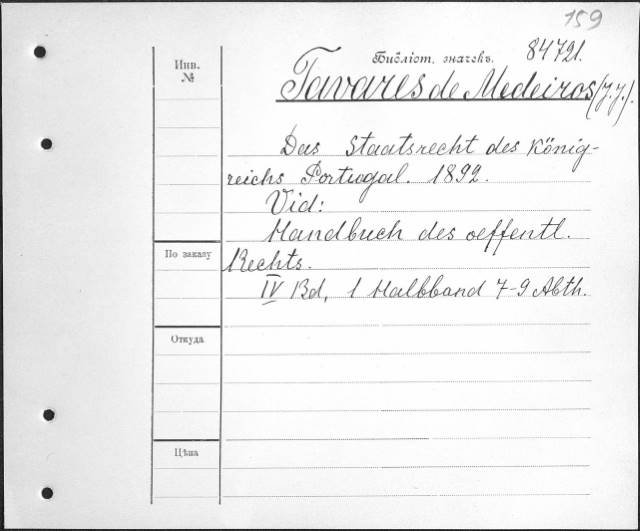 159
Библіот. значекъ. 84721.
Инв.
№
Tavares de Medeiros (J. J.).
Das Staatsrecht des König-
reichs Portugal. 1892.
Vid:
Handbuch des oeffentl.
По заказу
Rechts.
IV Bd, 1 Halbband 7-9 Abth.
Откуда
Цѣна